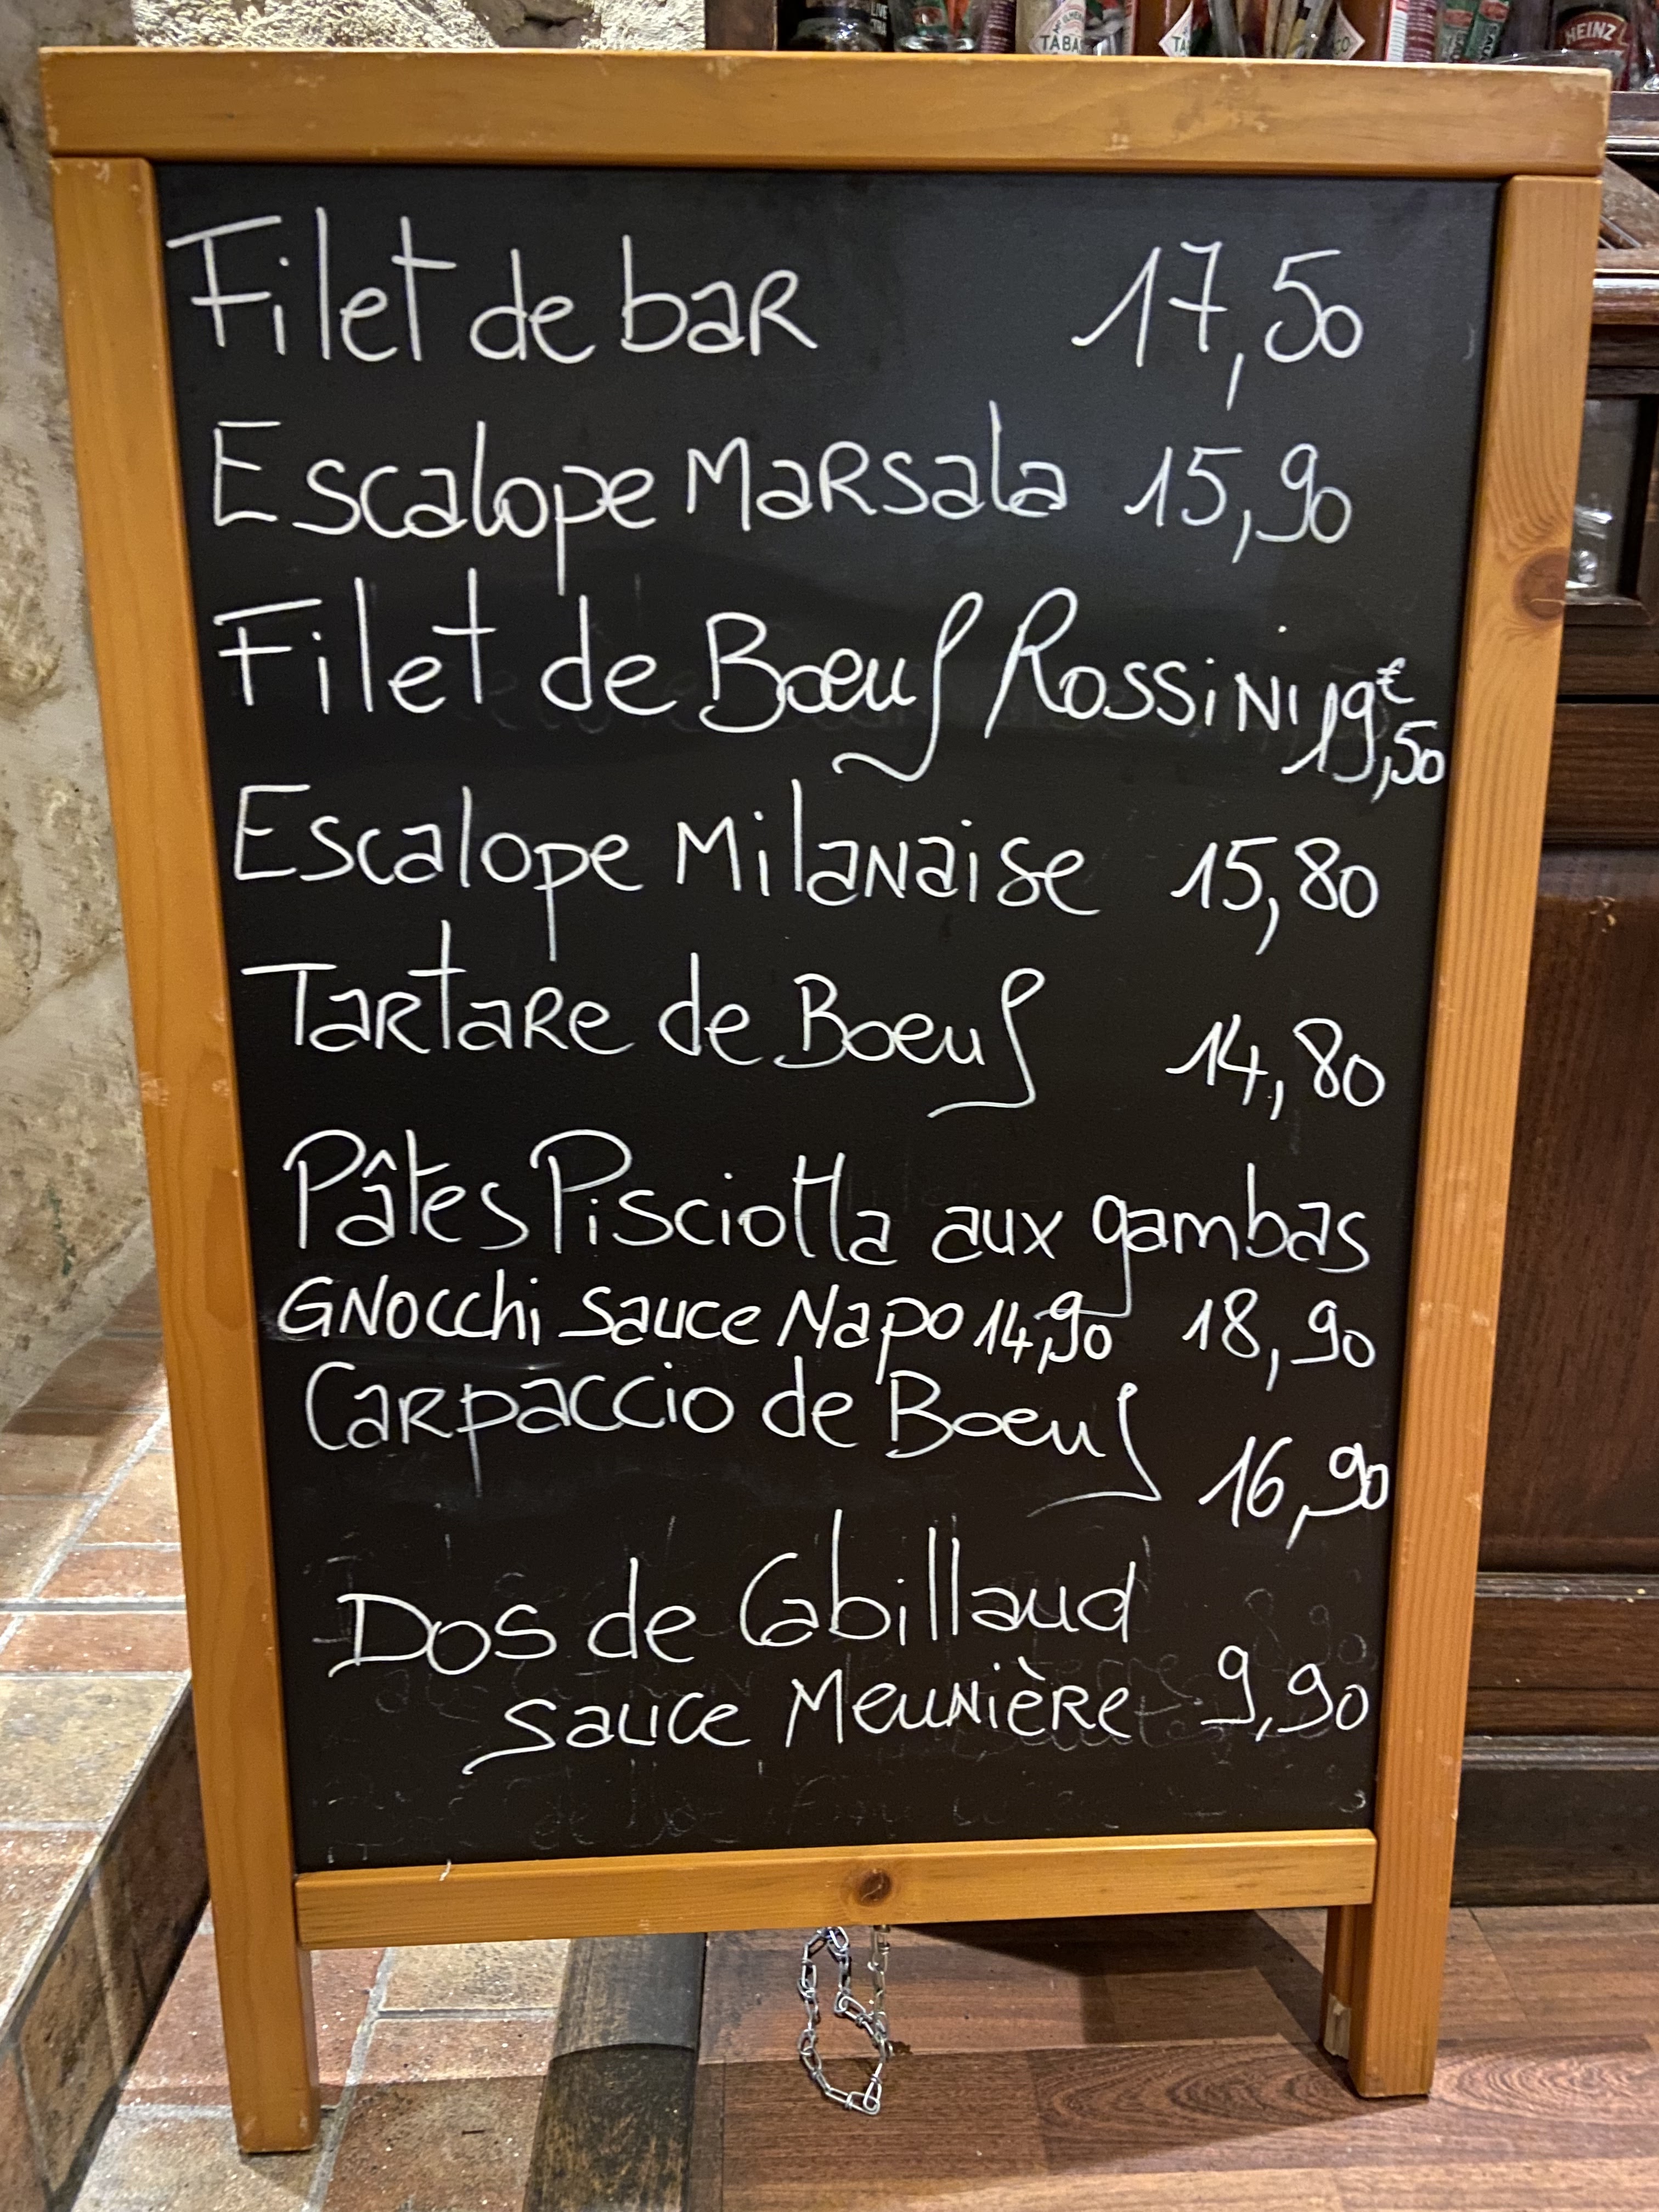 TABA
TA
CO
HEINZ
Filet de bar 17,50
Escalope Marsala 15,90
Filet de Bœuf Rossini 19€,50
Escalope Milanaise 15,80
Tartare de Boeuf 14,80
Pâtes Pisciotta aux gambas
Gnocchi sauce Napo 14,90 18,90
Carpaccio de Boeuf 16,90
Dos de Cabillaud
sauce Meunière 9,90